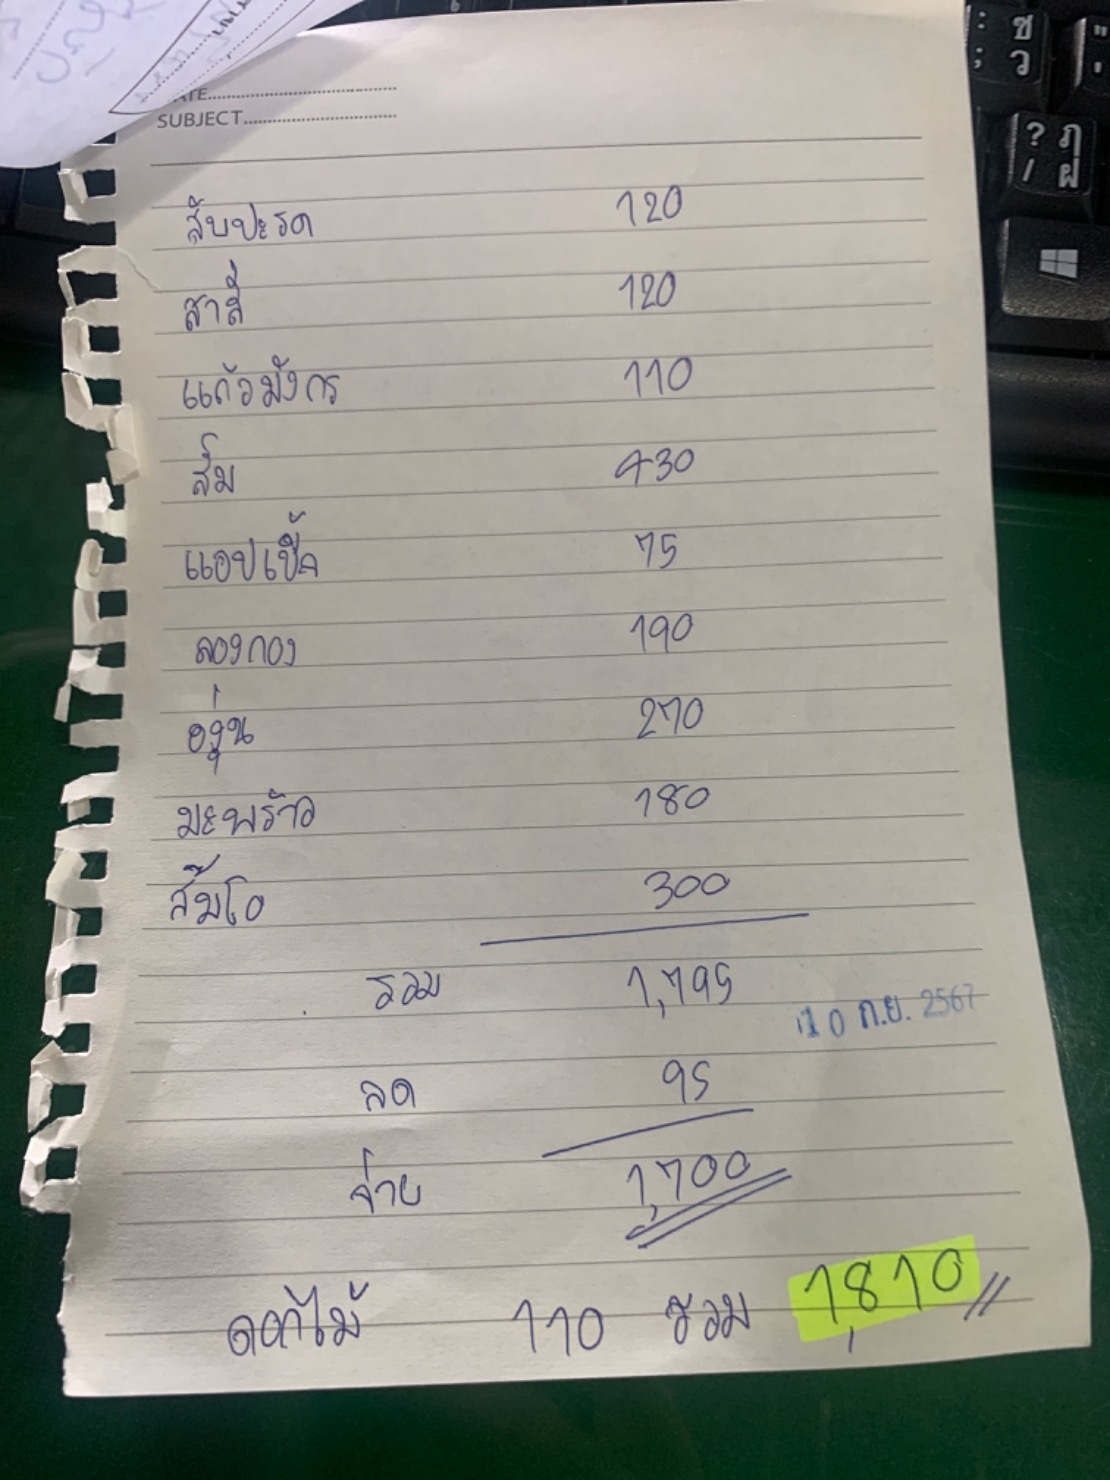 SUBJECT
สับปะรด 120
สาลี่ 120
แก้วมังกร 110
ส้ม 430
แอปเปิ้ล 75
ลองกอง 190
องุ่น 270
มะพร้าว 180
ส้มโอ 300
รวม 1,795
10 ก.ย. 2567
ลด 95
จ่าย 1,700
ดอกไม้ 110 รวม 1,810